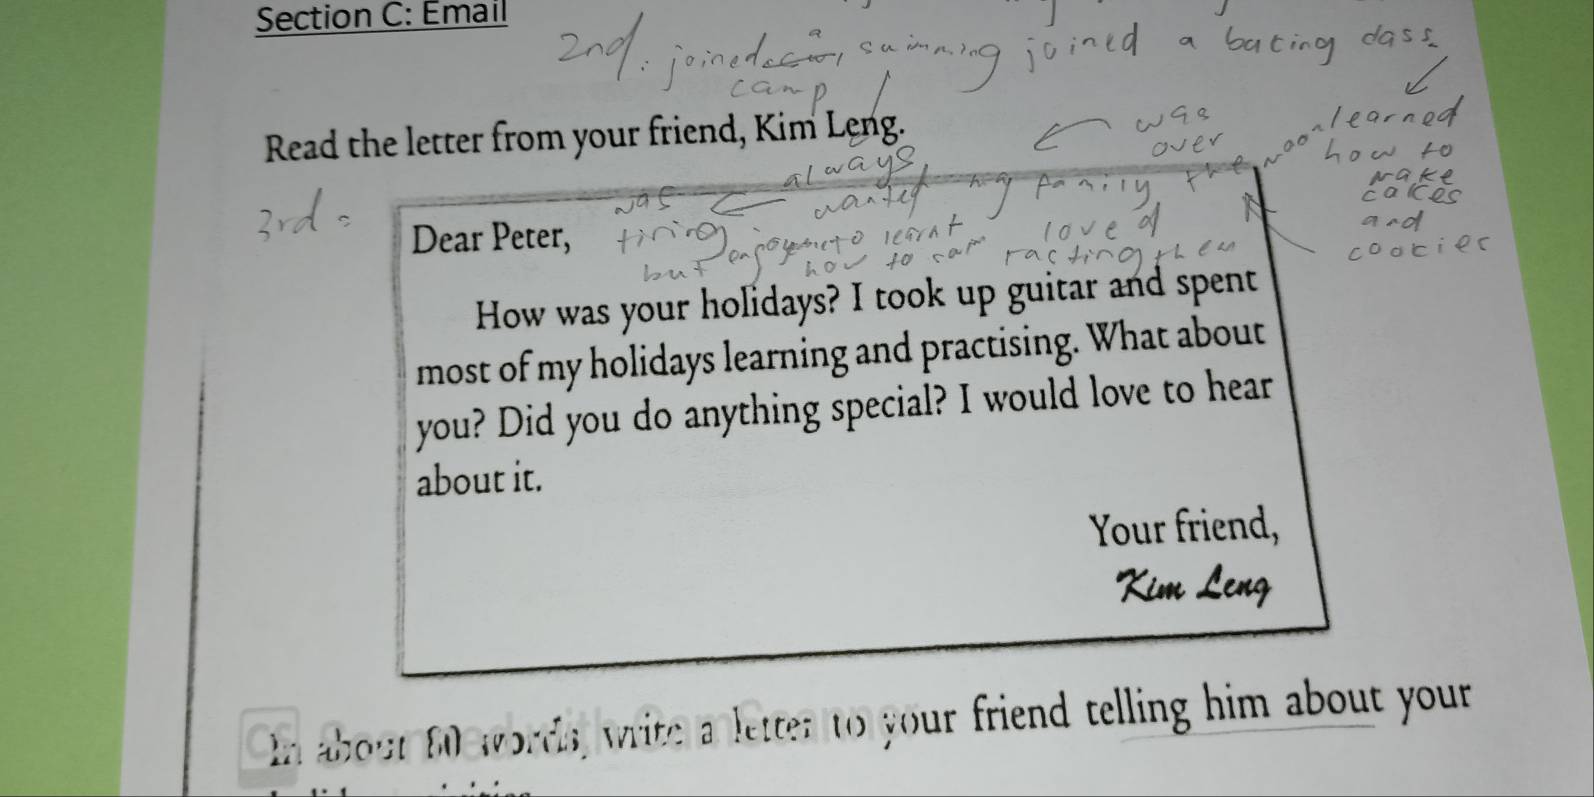 Section C: Email
2nd: joined a swimming joined a baking class
camp
Read the letter from your friend, Kim Leng.
was over
learned
how to
make
cakes
and
cookies
always
wanted
my family
3rd =
was
tiring
but
learnt
how to
loved
tasting them
Dear Peter,
How was your holidays? I took up guitar and spent
most of my holidays learning and practising. What about
you? Did you do anything special? I would love to hear
about it.
Your friend,
Kim Leng
In about 80 words, write a letter to your friend telling him about your